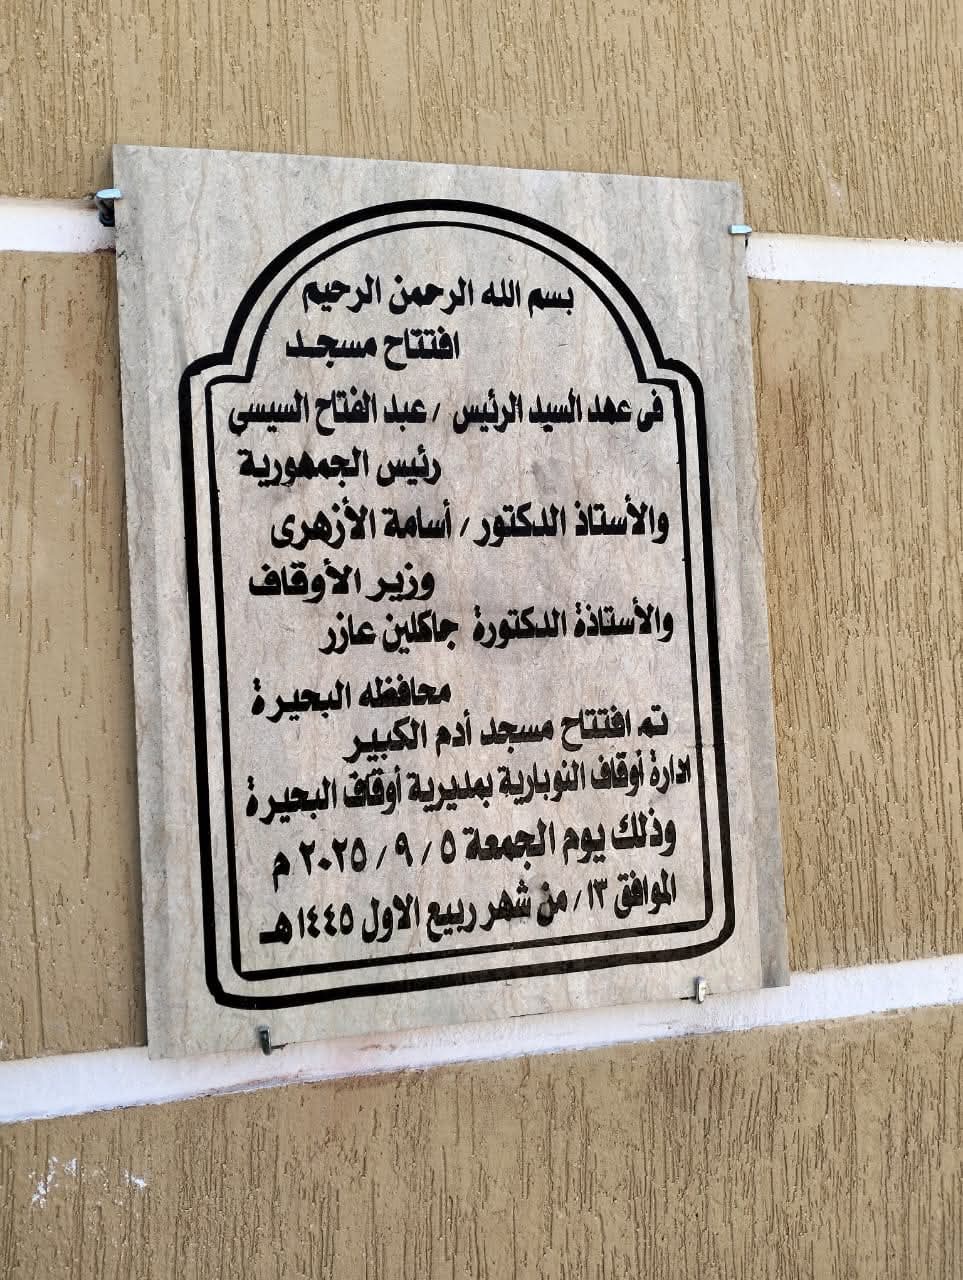 بسم الله الرحمن الرحيم
افتتاح مسجد
فى عهد السيد الرئيس / عبد الفتاح السيسي
رئيس الجمهورية
والأستاذ الدكتور / أسامة الأزهرى
وزير الأوقاف
والأستاذة الدكتورة جاكلين عازر
محافظه البحيرة
تم افتتاح مسجد أدم الكبير
ادارة أوقاف النوبارية بمديرية أوقاف البحيرة
وذلك يوم الجمعة ٥ / ٩ / ٢٠٢٥ م
الموافق ١٣ / من شهر ربيع الاول ١٤٤٥ هـ